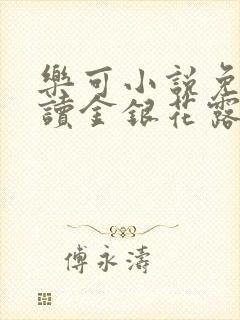 樂可小說免
讀金銀花露
傅永濤